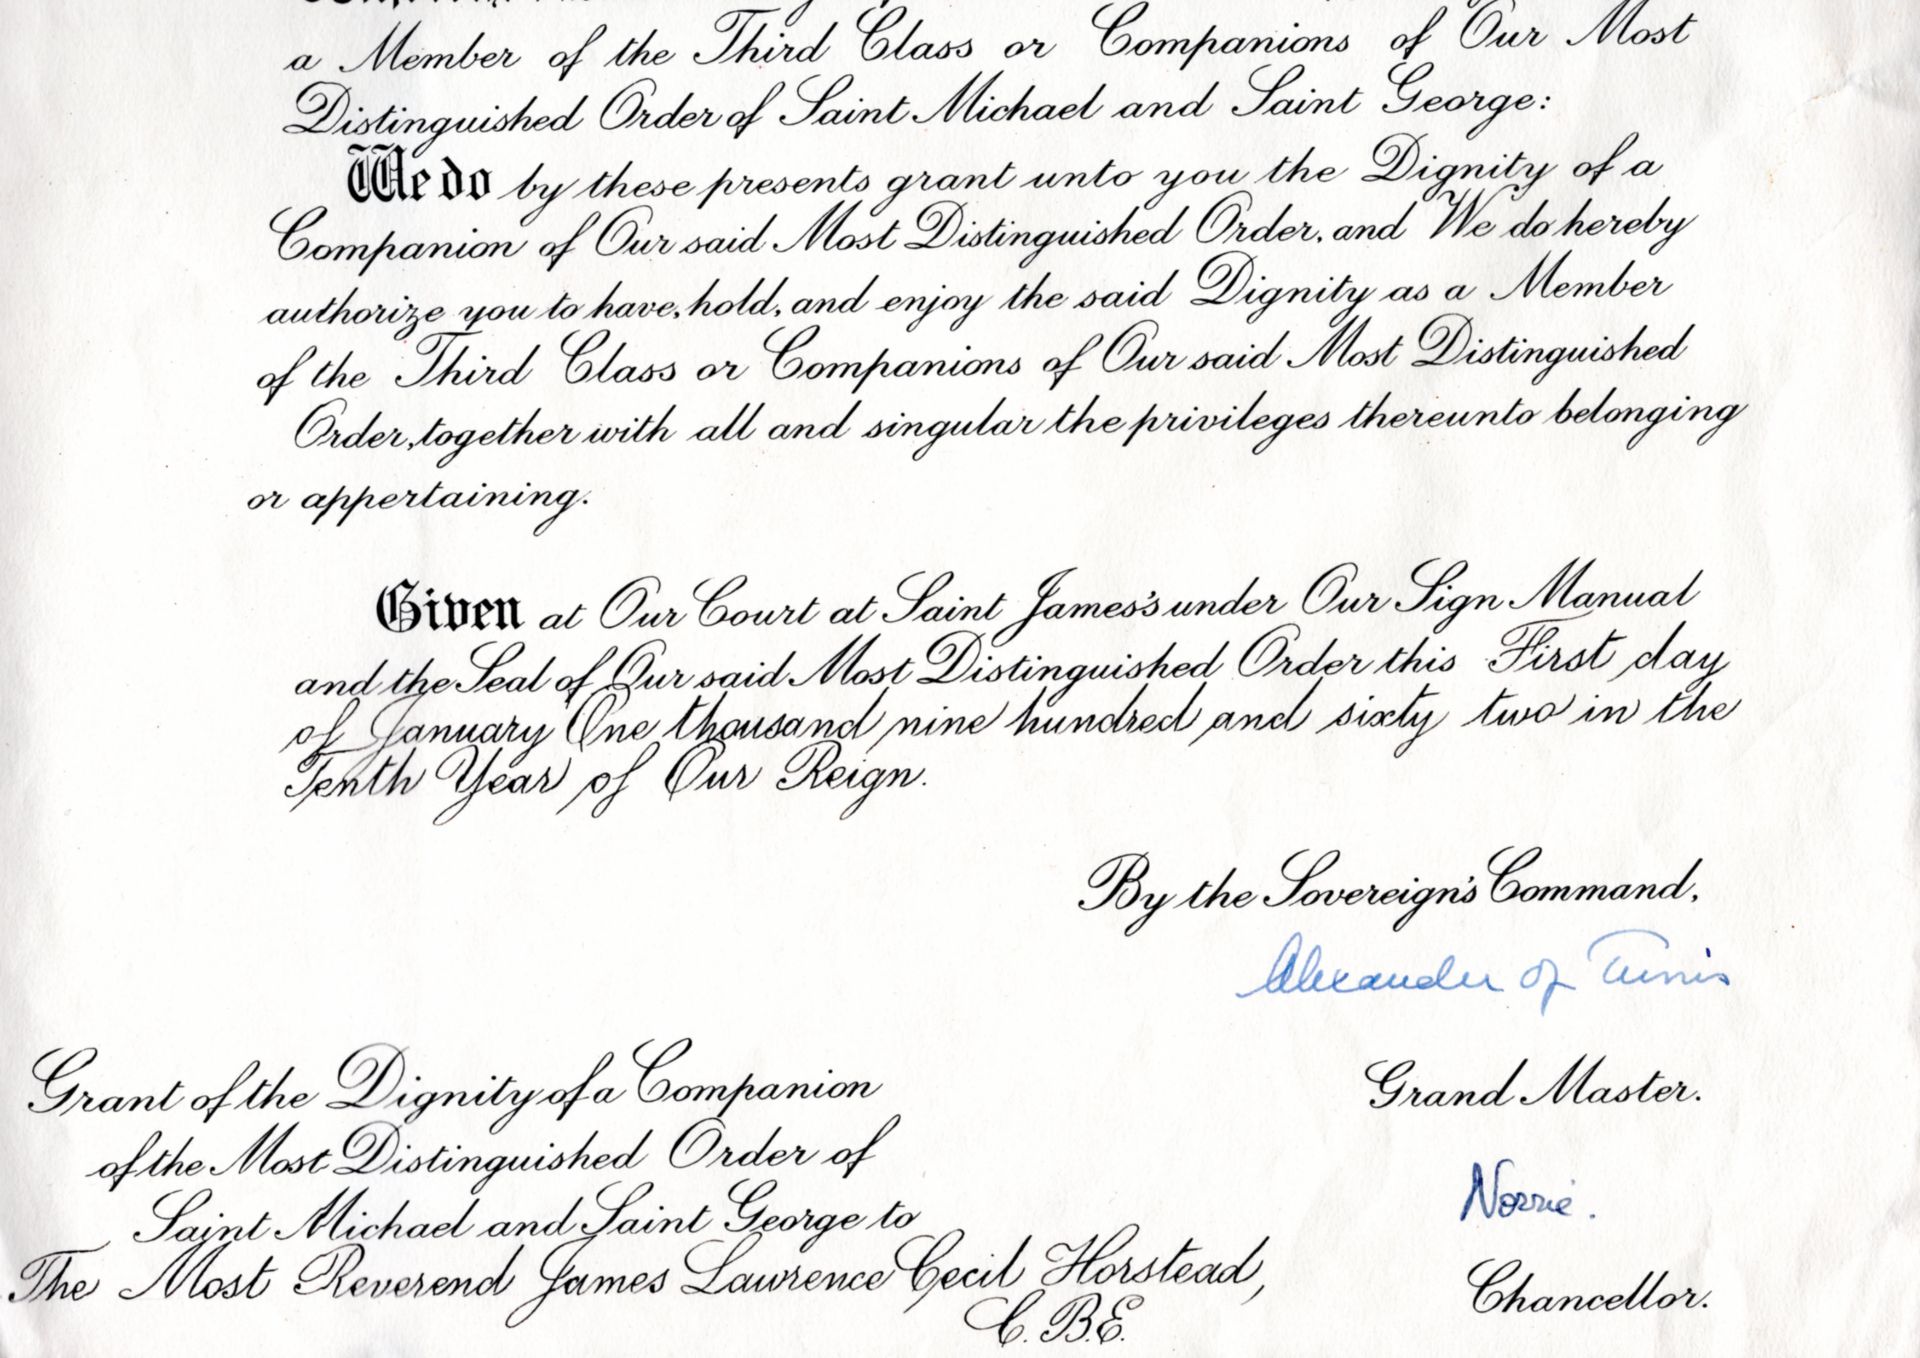 a Member of the Third Class or Companions of Our Most
Distinguished Order of Saint Michael and Saint George:
We do by these presents grant unto you the Dignity of a
Companion of Our said Most Distinguished Order, and We do hereby
authorize you to have, hold, and enjoy the said Dignity as a Member
of the Third Class or Companions of Our said Most Distinguished
Order, together with all and singular the privileges thereunto belonging
or appertaining.
Given at Our Court at Saint James's under Our Sign Manual
and the Seal of Our said Most Distinguished Order this First day
of January One thousand nine hundred and sixty two in the
Tenth Year of Our Reign.
By the Sovereign's Command,
Alexander of Tunis
Grand Master.
Norrie.
Chancellor.
Grant of the Dignity of a Companion
of the Most Distinguished Order of
Saint Michael and Saint George to
The Most Reverend James Lawrence Cecil Horstead,
C.B.E.